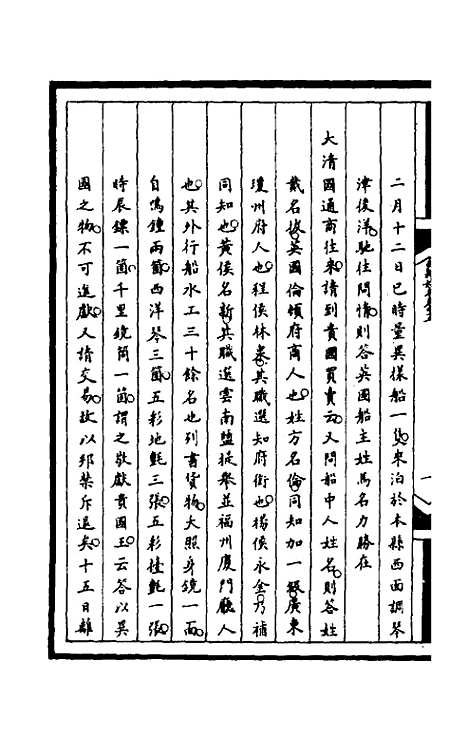 二月十二日巳時量異樣船一隻來泊於本縣西面調琴
津後洋馳往問情則答英國船主姓馬名力勝在
大清國通商往來請到貴國買賣云又問船中人姓名則答姓
戴名拔英國倫頓府商人也姓方名倫同知加一級廣東
瓊州府人也程侯林泰其職選知府銜也楊侯永金乃補
同知也黃侯名新其職選雲南鹽提舉並福州廈門廳人
也其外行船水工三十餘名也列書貨物大照身鏡一面
自鳴鍾兩箇西洋琴三箇五彩地氈三張五彩檯氈一張
時辰鏢一箇千里鏡筒一箇謂之敬獻貴國王云答以異
國之物不可進獻又請交易故以邦禁斥退矣十五日離